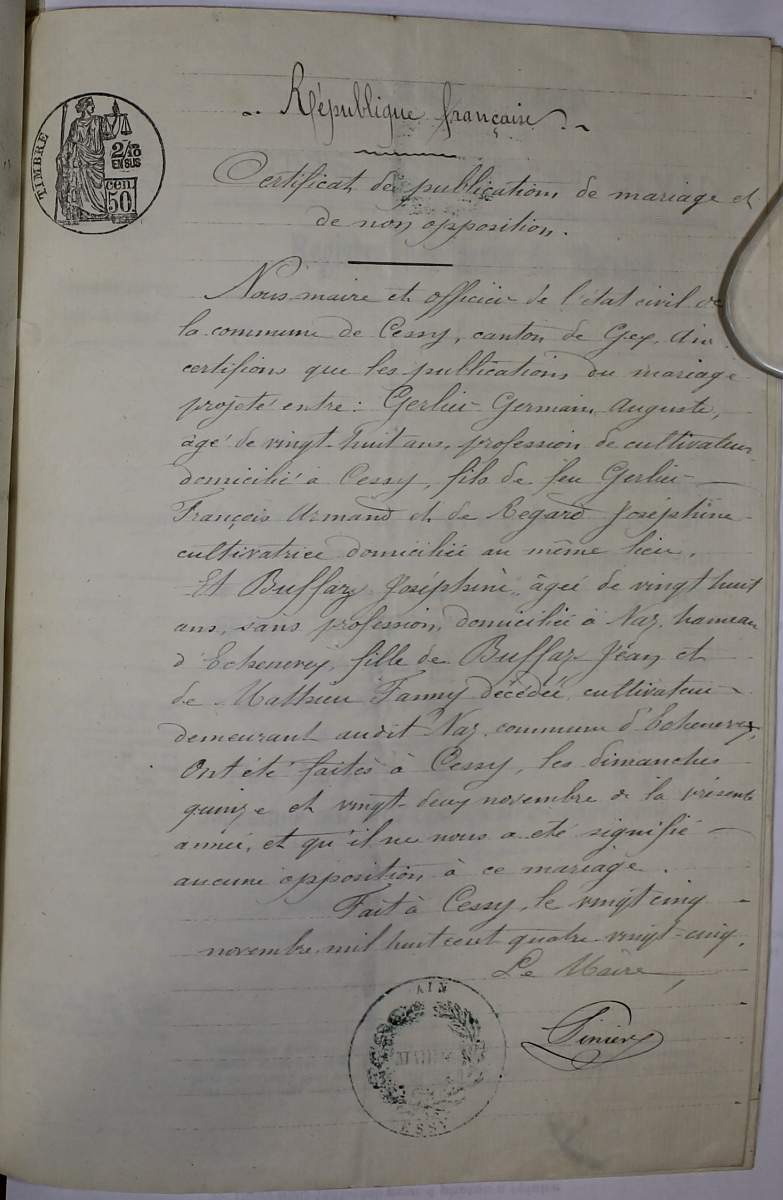 République française
TIMBRE
2/10
EN SUS
cen.
50
Certificat de publications de mariage et
de non opposition.
Nous maire et officier de l'état civil de
la commune de Cessy, canton de Gex, Ain
certifions que les publications du mariage
projeté entre : Gerlier Germain Auguste,
âgé de vingt-huit ans, profession de cultivateur
domicilié à Cessy, fils de feu Gerlier
François Armand et de Regard Joséphine
cultivatrice domiciliée au même lieu.
Et Buffaz Joséphine, âgée de vingt huit
ans, sans profession, domiciliée à Naz, hameau
d'Echenevex, fille de Buffaz Jean et
de Mathieu Fanny décédée, cultivateur
demeurant audit Naz, commune d'Echenevex,
Ont été faites à Cessy, les dimanches
quinze et vingt-deux novembre de la présente
année, et qu'il ne nous a été signifié
aucune opposition à ce mariage.
Fait à Cessy, le vingt cinq
novembre mil huit cent quatre-vingt-cinq.
Le Maire,
AIN
MAIRIE
CESSY